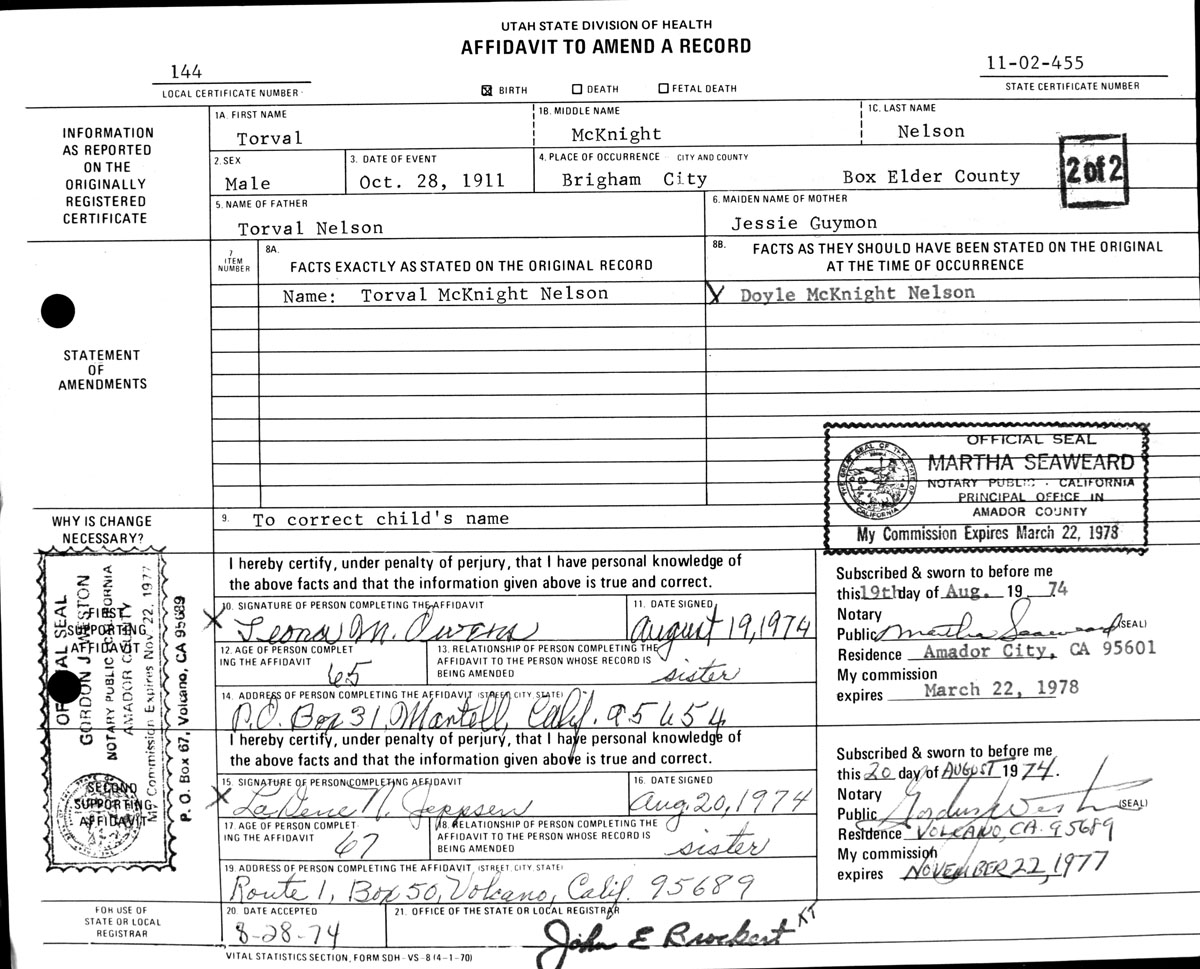 UTAH STATE DIVISION OF HEALTH
AFFIDAVIT TO AMEND A RECORD
144
LOCAL CERTIFICATE NUMBER
☒ BIRTH ☐ DEATH ☐ FETAL DEATH
11-02-455
STATE CERTIFICATE NUMBER
INFORMATION
AS REPORTED
ON THE
ORIGINALLY
REGISTERED
CERTIFICATE
1A. FIRST NAME 1B. MIDDLE NAME 1C. LAST NAME
Torval McKnight Nelson
2. SEX 3. DATE OF EVENT 4. PLACE OF OCCURRENCE CITY AND COUNTY
Male Oct. 28, 1911 Brigham City Box Elder County
2 of 2
5. NAME OF FATHER 6. MAIDEN NAME OF MOTHER
Torval Nelson Jessie Guymon
STATEMENT
OF
AMENDMENTS
7 ITEM NUMBER
8A. FACTS EXACTLY AS STATED ON THE ORIGINAL RECORD
8B. FACTS AS THEY SHOULD HAVE BEEN STATED ON THE ORIGINAL
AT THE TIME OF OCCURRENCE
Name: Torval McKnight Nelson X Doyle McKnight Nelson
OFFICIAL SEAL
MARTHA SEAWEARD
NOTARY PUBLIC - CALIFORNIA
PRINCIPAL OFFICE IN
AMADOR COUNTY
My Commission Expires March 22, 1978
THE GREAT SEAL OF THE STATE OF CALIFORNIA
WHY IS CHANGE
NECESSARY?
9. To correct child's name
FIRST
SUPPORTING
AFFIDAVIT
I hereby certify, under penalty of perjury, that I have personal knowledge of
the above facts and that the information given above is true and correct.
10. SIGNATURE OF PERSON COMPLETING THE AFFIDAVIT 11. DATE SIGNED
X Leona M. Owens August 19, 1974
12. AGE OF PERSON COMPLETING THE AFFIDAVIT
65
13. RELATIONSHIP OF PERSON COMPLETING THE
AFFIDAVIT TO THE PERSON WHOSE RECORD IS
BEING AMENDED
sister
14. ADDRESS OF PERSON COMPLETING THE AFFIDAVIT (STREET, CITY, STATE)
P.O. Box 31, Martell, Calif. 95654
Subscribed & sworn to before me
this 19th day of Aug. 19 74
Notary
Public Martha Seaweard (SEAL)
Residence Amador City, CA 95601
My commission
expires March 22, 1978
OFFICIAL SEAL
GORDON J. WESTON
NOTARY PUBLIC CALIFORNIA
AMADOR COUNTY
My Commission Expires Nov. 22, 1977
P. O. Box 67, Volcano, CA 95689
SECOND
SUPPORTING
AFFIDAVIT
I hereby certify, under penalty of perjury, that I have personal knowledge of
the above facts and that the information given above is true and correct.
15. SIGNATURE OF PERSON COMPLETING AFFIDAVIT 16. DATE SIGNED
X LaVene N. Jeppsen Aug 20, 1974
17. AGE OF PERSON COMPLETING THE AFFIDAVIT
67
18. RELATIONSHIP OF PERSON COMPLETING THE
AFFIDAVIT TO THE PERSON WHOSE RECORD IS
BEING AMENDED
sister
19. ADDRESS OF PERSON COMPLETING THE AFFIDAVIT (STREET, CITY, STATE)
Route 1, Box 50, Volcano, Calif. 95689
Subscribed & sworn to before me
this 20 day of AUGUST 1974.
Notary
Public (SEAL)
Residence VOLCANO, CA. 95689
My commission
expires NOVEMBER 22, 1977
FOR USE OF
STATE OR LOCAL
REGISTRAR
20. DATE ACCEPTED 21. OFFICE OF THE STATE OR LOCAL REGISTRAR
8-28-74 John E Brockert KT
VITAL STATISTICS SECTION, FORM SDH-VS-8 (4-1-70)